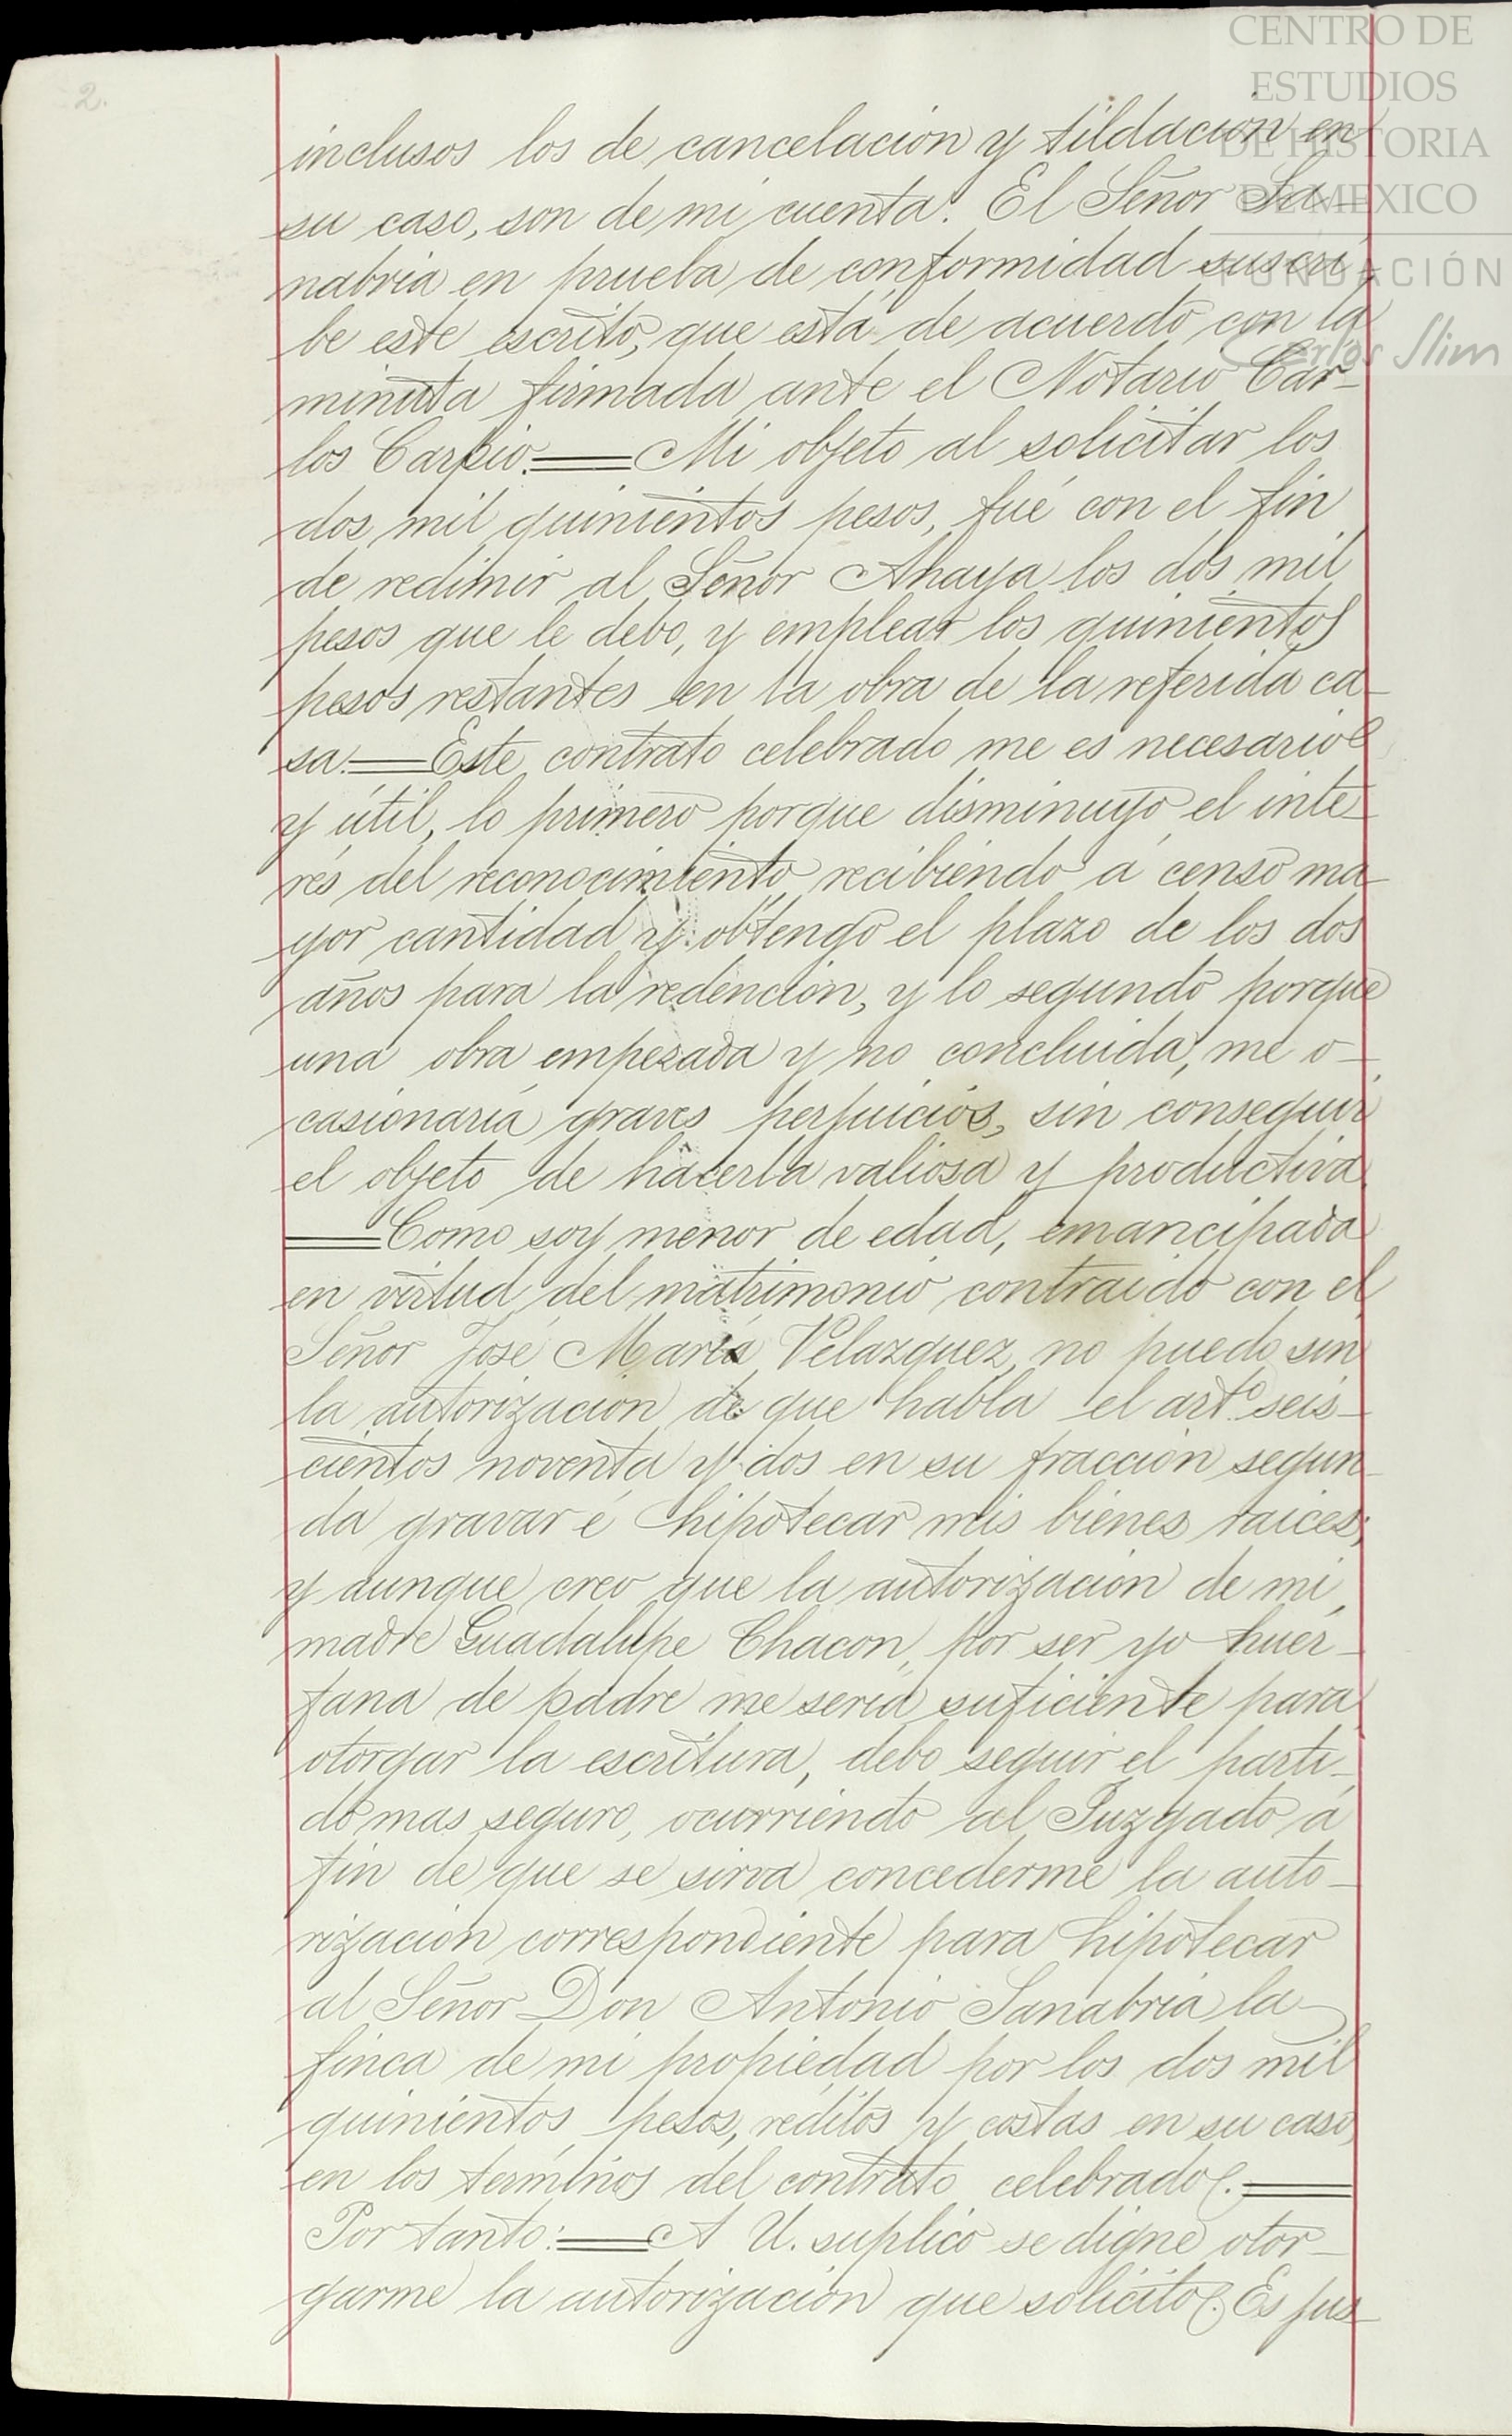 CENTRO DE
ESTUDIOS
DE HISTORIA
DE MEXICO
FUNDACIÓN
Carlos Slim
2.
inclusos los de cancelación y tildación en
su caso, son de mi cuenta. El Señor Sa-
nabria en prueba de conformidad suscri-
be este escrito, que está de acuerdo con la
minuta firmada ante el Notario Car-
los Carpio.═Mi objeto al solicitar los
dos mil quinientos pesos, fué con el fin
de redimir al Señor Anaya los dos mil
pesos que le debo, y emplear los quinientos
pesos restantes en la obra de la referida ca-
sa.═Este contrato celebrado me es necesario
y útil, lo primero porque disminuyo el inte-
rés del reconocimiento recibiendo á censo ma-
yor cantidad y obtengo el plazo de los dos
años para la redención, y lo segundo porque
una obra empezada y no concluida, me o-
casionaría graves perjuicios, sin conseguir
el objeto de hacerla valiosa y productiva
═Como soy menor de edad, emancipada
en virtud del matrimonio contraido con el
Señor José María Velazquez, no puedo sin
la autorización de que habla el art.º seis-
cientos noventa y dos en su fracción segun-
da gravar é hipotecar mis bienes raices;
y aunque creo que la autorización de mi
madre Guadalupe Chacon, por ser yo huer-
fana de padre me sería suficiente para
otorgar la escritura, debo seguir el parti-
do mas seguro, ocurriendo al Juzgado á
fin de que se sirva concederme la auto-
rización correspondiente para hipotecar
al Señor Don Antonio Sanabria la
finca de mi propiedad por los dos mil
quinientos pesos, réditos y costas en su caso,
en los términos del contrato celebrado.═
Por tanto:═A U. suplico se digne otor-
garme la autorización que solicito. Es jus-